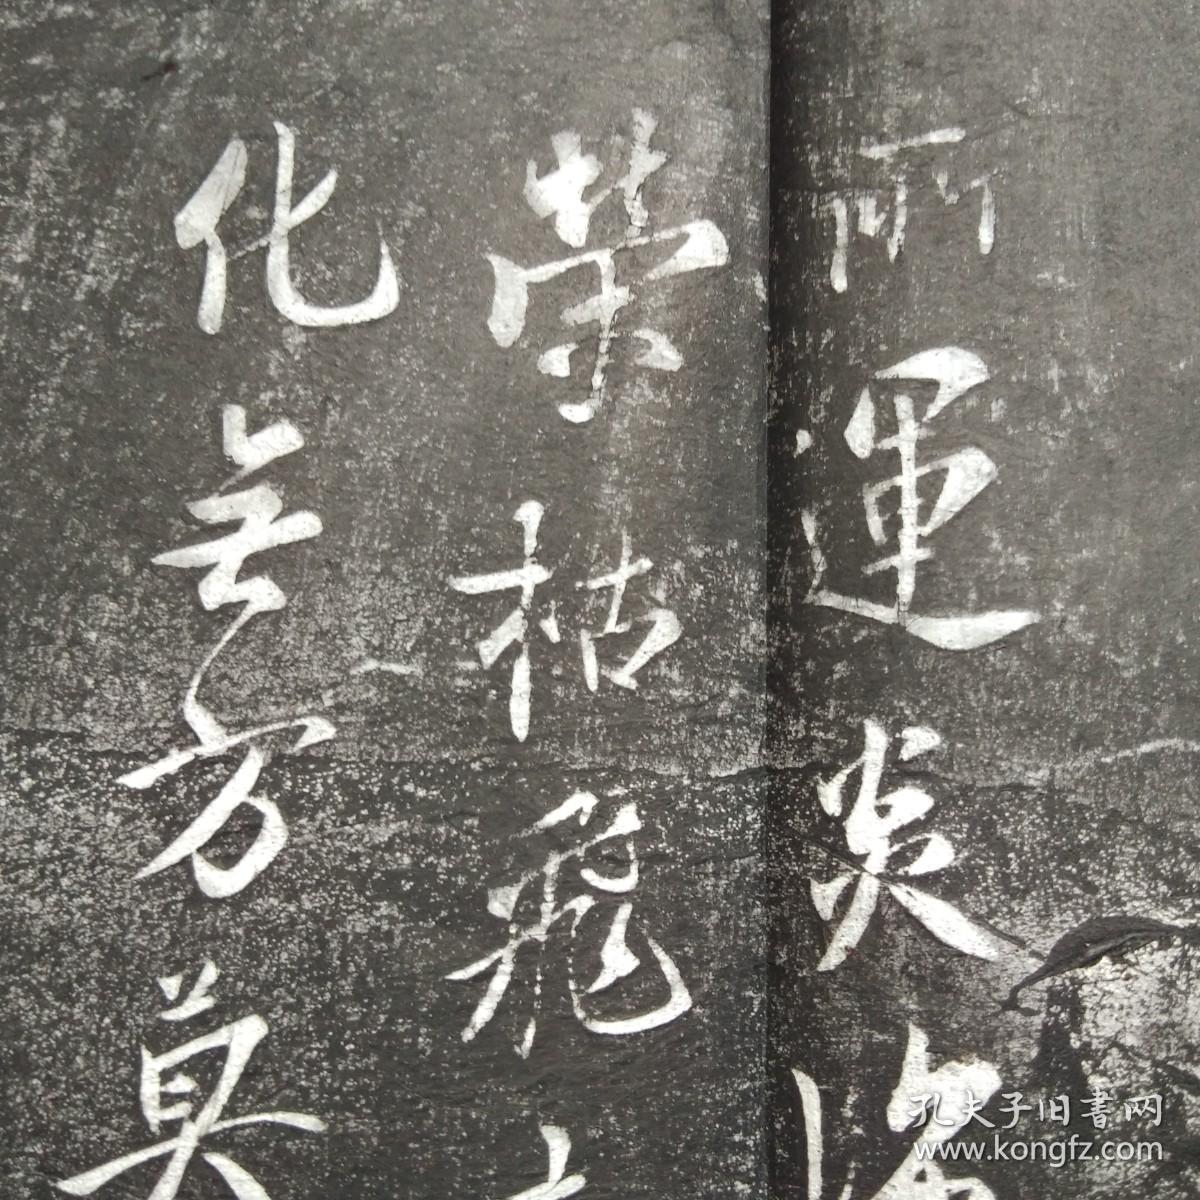 所運炎
榮枯飛
化無方莫
孔夫子旧書网
www.kongfz.com